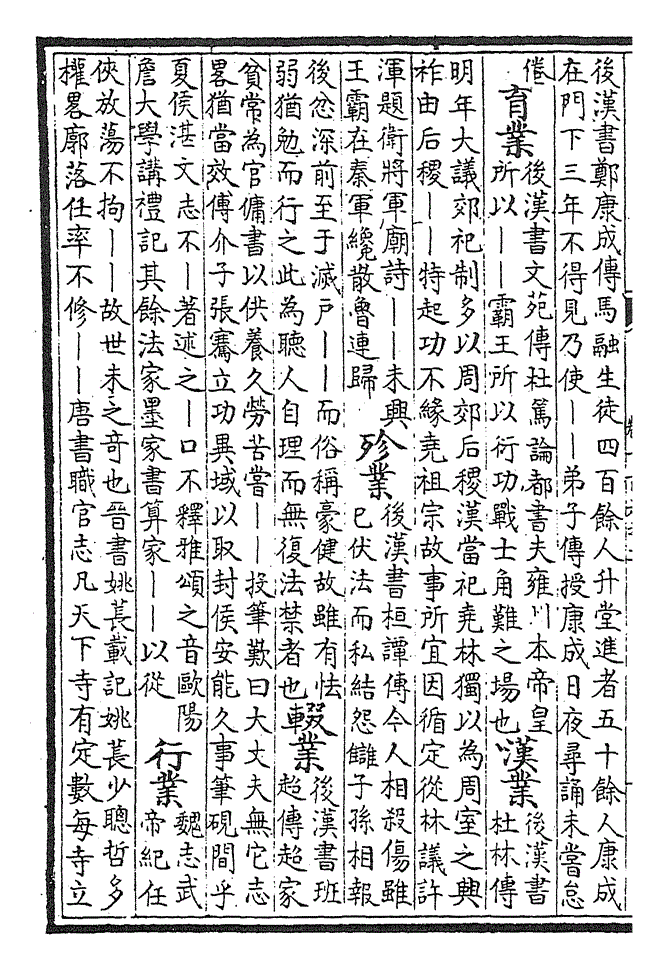 後漢書鄭康成傳馬融生徒四百餘人升堂進者五十餘人康成
在門下三年不得見乃使——弟子傳授康成日夜尋誦未嘗怠
倦
育業
後漢書文苑傳杜篤論都書夫雍川本帝皇
所以——霸王所以衍功戰士角難之場也
漢業
後漢書
杜林傳
明年大議郊祀制多以周郊后稷漢當祀堯林獨以為周室之興
祚由后稷——特起功不緣堯祖宗故事所宜因循定從林議許
渾題衛將軍廟詩——未興
王霸在秦軍纔散魯連歸
殄業
後漢書桓譚傳今人相殺傷雖
已伏法而私結怨讎子孫相報
後忿深前至于滅戶——而俗稱豪健故雖有怯
弱猶勉而行之此為聽人自理而無復法禁者也
輟業
後漢書班
超傳超家
貧常為官傭書以供養久勞苦嘗——投筆歎曰大丈夫無它志
畧猶當效傅介子張騫立功異域以取封侯安能久事筆硯間乎
夏侯湛文志不—著述之—口不釋雅頌之音歐陽
詹大學講禮記其餘法家墨家書算家——以從
行業
魏志武
帝紀任
俠放蕩不拘——故世未之奇也晉書姚萇載記姚萇少聰哲多
權畧廓落任率不修——唐書職官志凡天下寺有定數每寺立